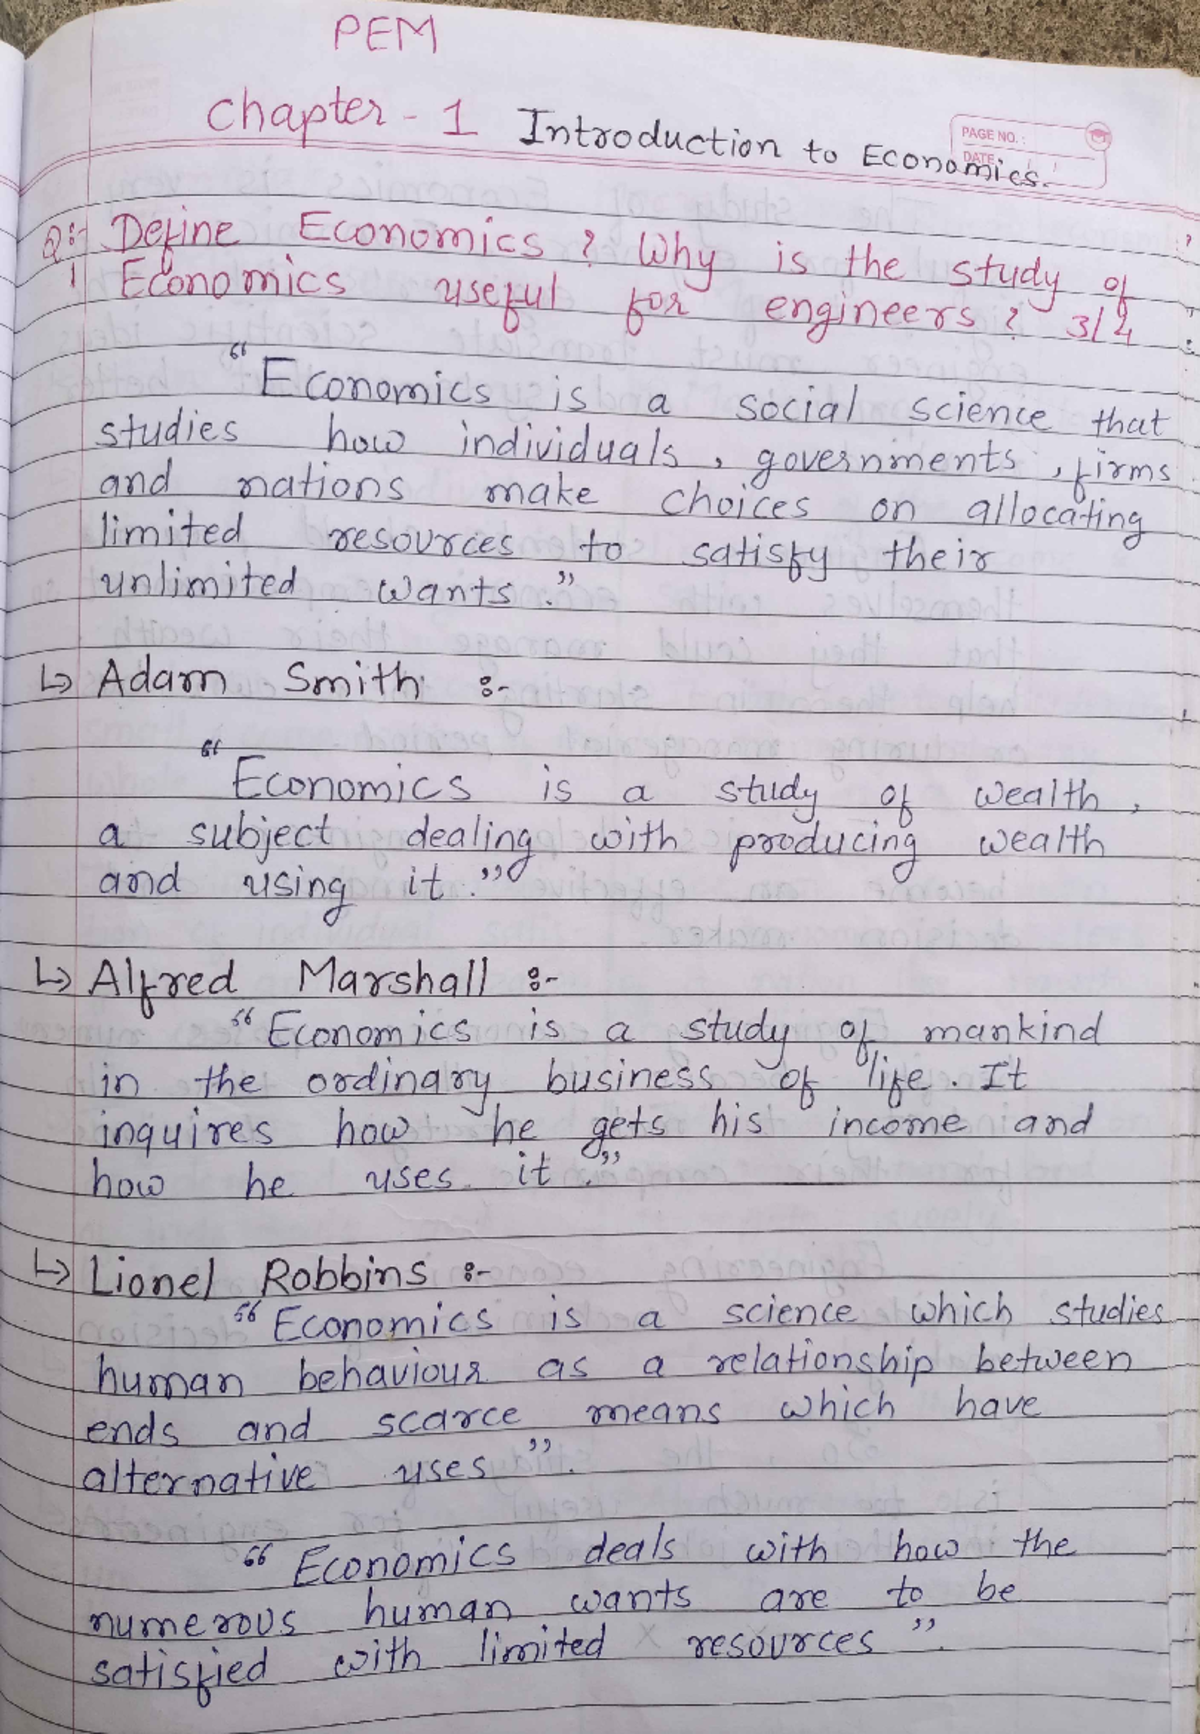 PEM
Chapter - 1 Introduction to Economics.
PAGE NO. :
DATE
Q:- Define Economics ? Why is the study of
1 Economics useful for engineers ? 3/4
"Economics is a social science that
studies how individuals, governments, firms
and nations make choices on allocating
limited resources to satisfy their
unlimited wants."
↳ Adam Smith :-
"Economics is a study of wealth,
a subject dealing with producing wealth
and using it."
↳ Alfred Marshall :-
"Economics is a study of mankind
in the ordinary business of life. It
inquires how he gets his income and
how he uses it."
↳ Lionel Robbins :-
"Economics is a science which studies
human behaviour as a relationship between
ends and scarce means which have
alternative uses".
"Economics deals with how the
numerous human wants are to be
satisfied with limited resources".